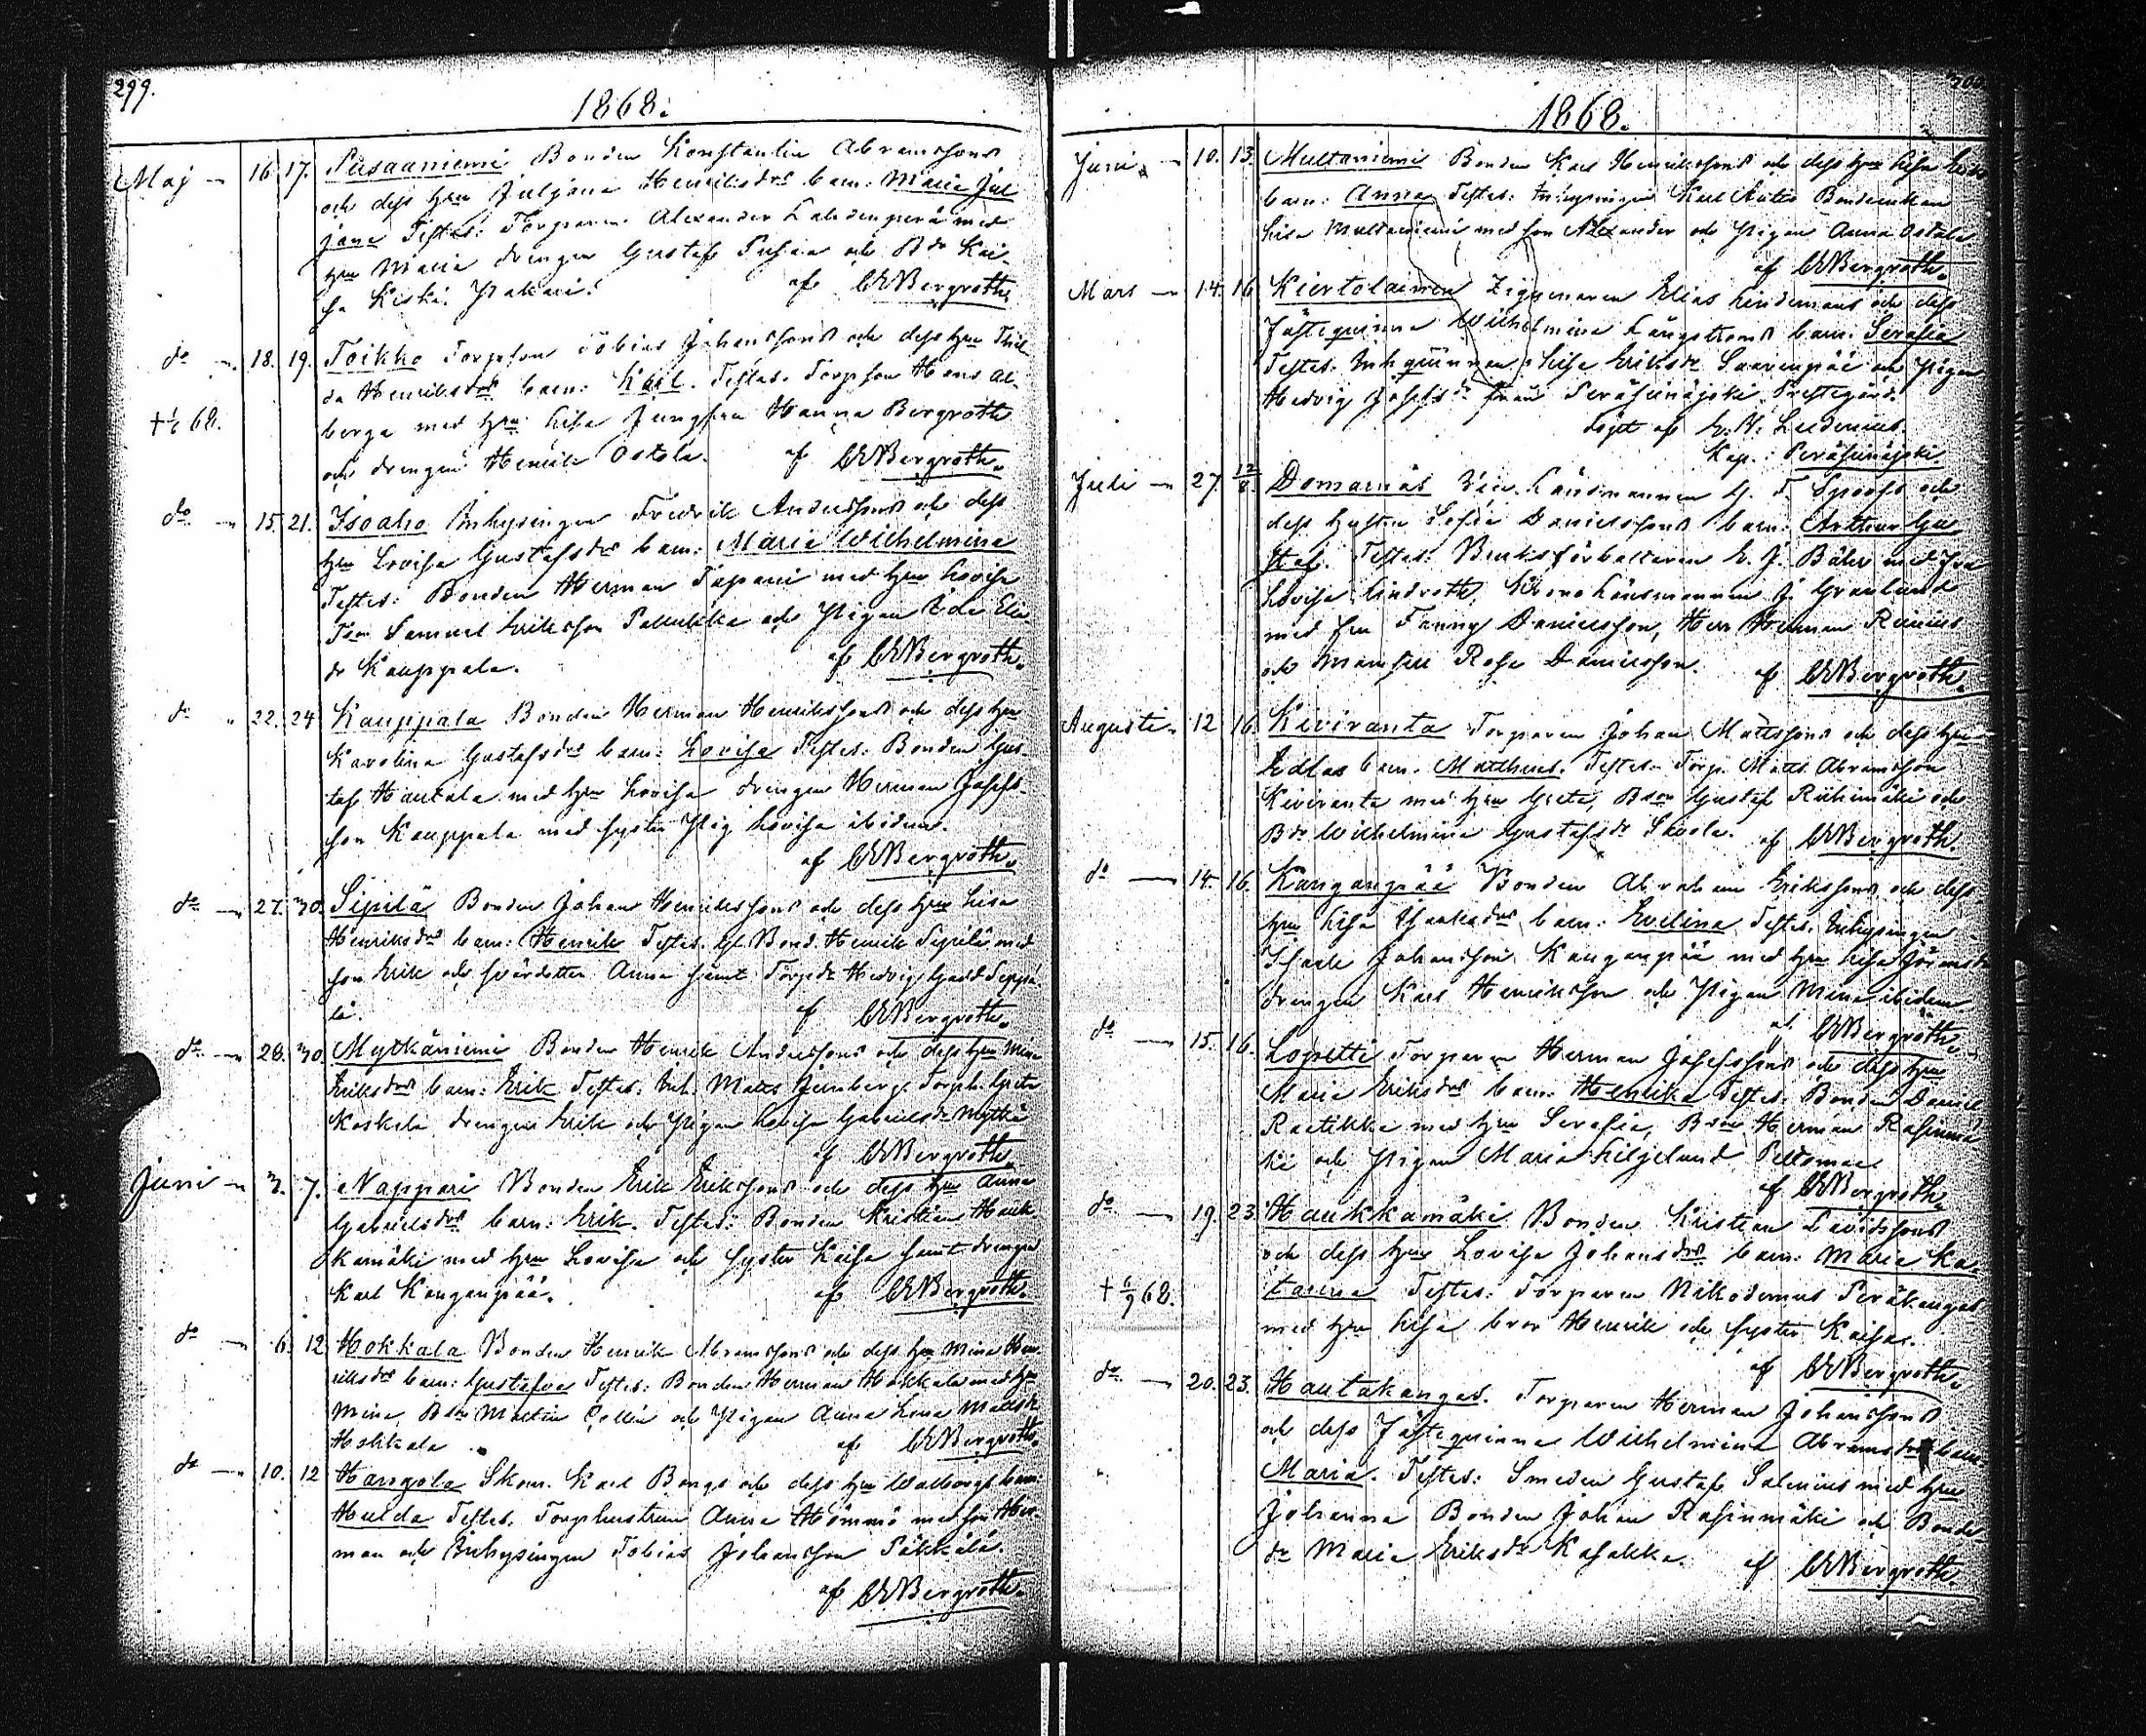 299.
1868.
Maj 16. 17. Pusaaniemi Bonden Konstantin Abramssons
och dess hru Juljana Henriksdrs barn: Maria Jul
jana Testes: Torparen Alexander Lahdenperä med
hru Maria drengen Gustaf och Bdr Kai-
sa Kiski. af CEBergroth.
do 18. 19. Toikko Torpson Tobias Johanssons och dess hru
da Henriksdrs barn: Karl. Testes. Torpson Hans Al-
berga med hru Lisa Jungfru Hanna Bergroth
och drengen Henrik Ostola. af CEBergroth.
68.
do 15. 21. Isoaho Inhysingen Fredrik Anderssons och dess
hru Lovisa Gustafsdrs barn: Maria Wilhelmina
Testes: Bonden Herman Tapani med hru Lovisa
Samuel Eriksson och Pigan Ida
dr Kauppala. af CEBergroth.
do 22. 24 Kauppala Bonden Herman Henrikssons och dess hru
Karolina Gustafsdrs barn: Lovisa Testes: Bonden Gus-
taf Hautala med hru Lovisa drengen Herman Josefs-
son Kauppala med syster Pig Lovisa ibidem.
af CEBergroth.
do 27. 30. Sipilä Bonden Johan Henrikssons och dess hru Lisa
Henriksdrs barn: Henrik Testes. Bond. Henrik Sipilä med
son Erik och svärdotter Anna samt Torpdr Hedvig Seppä-
lä. af CEBergroth.
do 28. 30. Mytkäniemi Bonden Henrik Anderssons och dess hru Mina
Eriksdrs barn: Erik Testes. Inh. Matts Torph. Greta
Koskela drengen Erik och Pigan Lovisa Gabrielsdr Mytkä
af CEBergroth.
Juni 3. 7. Nappari Bonden Erik Erikssons och dess hru Anna
Gabrielsdrs barn: Erik. Testes: Bonden Kristian Hauk-
kamäki med hru Lovisa och syster Kaisa samt drengen
Karl Kangaspää. af CEBergroth.
do 6. 12 Hokkala Bonden Henrik Abramssons och dess hru Mina Hen-
riksdrs barn: Gustafva Testes: Bonden Herman Hokkala med hru
Mina, Martin och Pigan Anna Lena Mattsdr
Hokkala af CEBergroth.
do 10. 12 Hangola Skom. Karl Bangs och dess hru Walborgs barn:
Hulda Testes. Torphustrun Anna Hömmö med son Her-
man och Inhysingen Tobias Johansson Päkkälä.
af CEBergroth.
1868.
Juni 10. 13. Multaniemi Bonden Karl Henrikssons och dess hru Lisa
barn: Anna Testes: Inhysingen Karl Bondeenkan
Lisa Multaniemi med son Alexander och Pigan Anna Ostola
af CEBergroth.
Mars 14. 16 Kiertolainen Zigenaren Elias Lindemans och dess
Fästeqvinna Wilhelmina Långströms barn: Serafia
Testes. Inhqvinnan Lisa Eriksdr Saarenpää och Pigan
Hedvig Josefsdr från Peräseinäjoki Prestegård.
döpt af
Kap. i Peräseinäjoki.
Juli 27. 12/8. Domarnäs Länsmannen G. F. Spoofs och
dess hustru Sofia Danielssons barn: Arthur Gu-
staf. Testes: Bruksförvaltaren E. J. Bähr med fru
Lovisa Lindroth, Kronolänsmannen J. Granlund
med fru Fanny Danielsson, Herr Herman Rinius
och Mamsell Rosa Danielsson. af CEBergroth.
Augusti 12 16. Kiviranta Torparen Johan Mattssons och dess hru
Eddas barn. Matthias. Testes. Torp. Matts Abramsson
Kiviranta med hru Greta, Bson Gustaf Riihimäki och
Bdr Wilhelmina Gustafsdr Skoola. af CEBergroth
do 14. 16. Kangaspää Bonden Abraham Erikssons och dess
hru Lisa Isaksdrs barn: Evelina Testes. Inhysingen
Isaak Johansson Kangaspää med hru Lisa
drengen Karl Henriksson och Pigan Mina ibidem
af CEBergroth.
do 15. 16. Lopetti Torparen Herman Josefssons och dess hru
Maria Eriksdrs barn. Henrika Testes: Bonden Daniel
Raatikka med hru Serafia, Bson Herman Rasinmä-
ki och Pigan Maria Liljelund
af CEBergroth.
do 19. 23. Haukkamäki Bonden Kristian Davidssons
och dess hru Lovisa Johansdrs barn: Maria Ka-
tarina Testes: Torparen Nikodemus Peräkangas
med hru Lisa bror Henrik och syster Kaisa.
af CEBergroth.
+ 6/9 68.
do 20. 23. Hautakangas. Torparen Herman Johanssons
och dess Fästeqvinna Wilhelmina Abramsdrs barn
Maria. Testes: Smeden Gustaf Salenius med hru
Johanna Bonden Johan Rasinmäki och Bonde
dr Maria Eriksdr Kasakka. af CEBergroth.